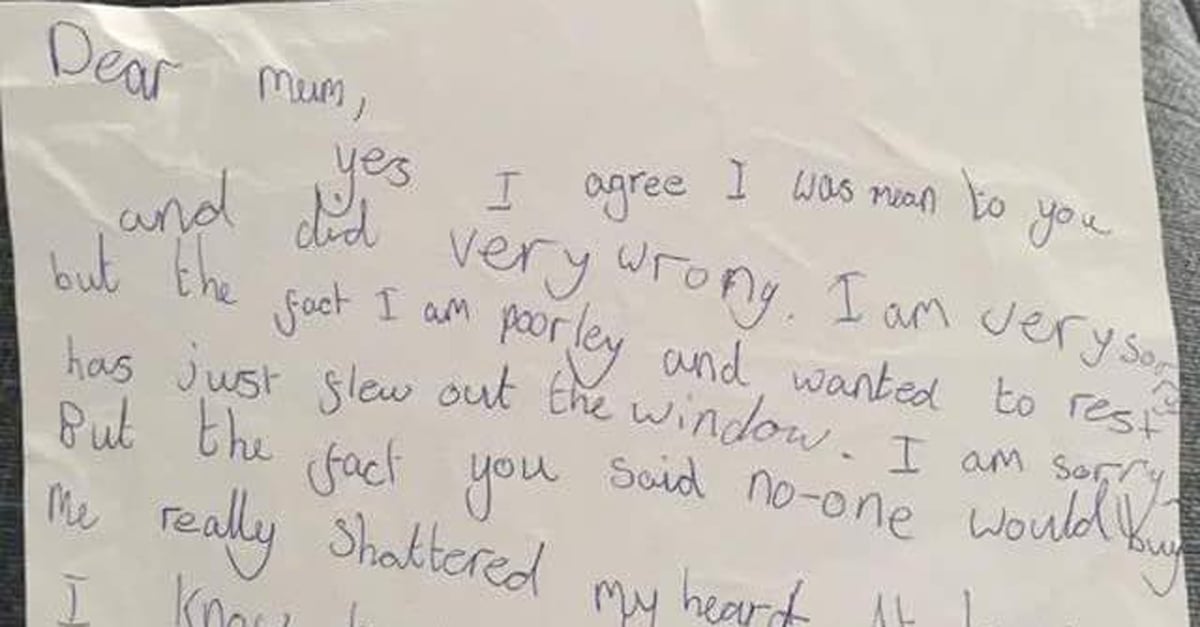 Dear Mum,
yes I agree I was mean to you
and did very wrong. I am very
but the fact I am poorley and wanted to rest
has just flew out the window. I am sorry
But the fact you said no-one would buy
Me really shattered my heart
I know